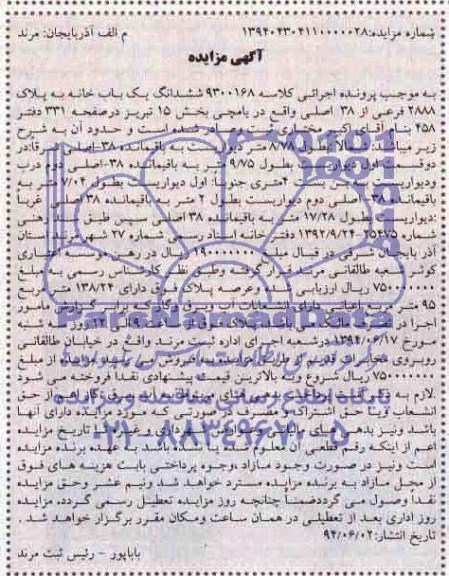 شماره مزایده: ۱۳۹۴۰۴۳۰۴۱۱۰۰۰۰۰۲۸ م الف آذربایجان: مرند
آگهی مزایده
به موجب پرونده اجرائی کلاسه ۹۳۰۰۱۶۸ ششدانگ یک باب خانه به پلاک
۲۸۸۸ فرعی از ۳۸ اصلی واقع در یامچی بخش ۱۵ تبریز درصفحه ۳۳۱ دفتر
۴۵۸ بنام آقای اکبر مختاری صادر شده است و حدود آن به شرح
زیر میباشد بطول ۸/۷۸ متر دیواریست به باقیمانده ۳۸-اصلی شرقا:در
دوقسمت اول دیواریست بطول ۹/۷۵ متر به باقیمانده ۳۸-اصلی دوم درب
ودیواریست بن بست ۴متری جنوبا: اول دیواریست بطول ۷/۰۴ متر به
باقیمانده ۳۸-اصلی دوم دیواریست بطول ۲ متر به باقیمانده ۳۸ اصلی غربا
:دیواریست بطول ۱۷/۲۸ متر به باقیمانده ۳۸ اصلی سپس طبق سند رهنی
شماره ۲۵۴۷۵-۱۳۹۲/۹/۲۴ دفتر خانه اسناد رسمی شماره ۲۷ شهر مرند استان
آذربایجان شرقی در قبال مبلغ ریال در رهن موسسه اعتباری
کوثر شعبه طالقانی مرند قرار گرفته وطبق نظر کارشناس رسمی به مبلغ
۷۵۰۰۰۰۰۰۰ ریال ارزیابی شده وعرصه پلاک فوق دارای ۱۳۸/۲۴ متر مربع
۹۵ متر مربع اعیانی دارای انشعابات آب وبرق وگاز که برابر گزارش مامور
اجرا در تصرف مالک می باشد پلاک فوق از ساعت ۹ الی ۱۲ روز سه شنبه
مورخ ۱۳۹۴/۰۶/۱۷ درشعبه اجرای اداره ثبت مرند واقع در خیابان طالقانی
روبروی مخابرات قدیم از طریق مزایده به فروش می رسد مزایده از مبلغ
۷۵۰۰۰۰۰۰۰ ریال شروع وبه بالاترین قیمت پیشنهادی نقدا فروخته می شود
.لازم به ذکر است پرداخت بدهی های مربوط به آب وبرق وگاز اعم از حق
انشعاب ویا حق اشتراک و مصرف در صورتی که مورد مزایده دارای آنها
باشد ونیز بدهی های مالیاتی و عوارض شهرداری و غیره تا تاریخ مزایده
اعم از اینکه رقم قطعی آن معلوم شده یا نشده باشد به عهده برنده مزایده
است ونیز در صورت وجود مازاد ،وجوه پرداختی بابت هزینه های فوق
از محل مازاد به برنده مزایده مسترد خواهد شد ونیم عشر وحق مزایده
نقدا وصول می گرددضمنا چنانچه روز مزایده تعطیل رسمی گردد، مزایده
روز اداری بعد از تعطیلی در همان ساعت ومکان مقرر برگزار خواهد شد .
تاریخ انتشار:۹۴/۰۶/۰۲
باباپور - رئیس ثبت مرند
ParsNamadData
۰۲۱-۸۸۳۴۹۶۷۰-۵